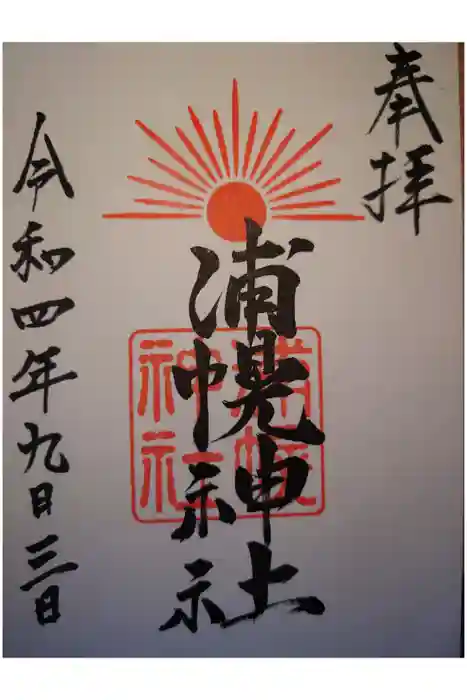 奉拝
浦幌神社
浦幌
神社
令和四年九月三日